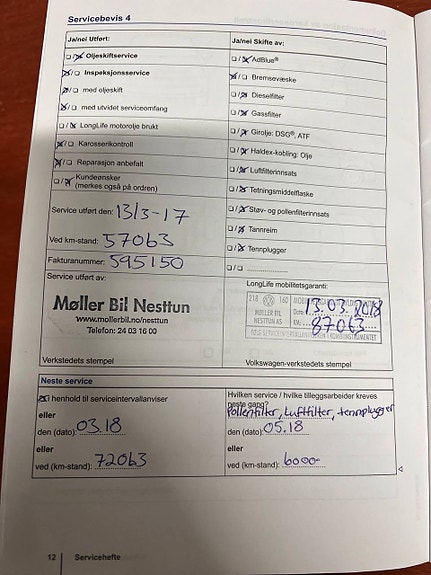 Servicebevis 4
Ja/nei Utført:
Oljeskiftservice
Inspeksjonsservice
med oljeskift
med utvidet serviceomfang
LongLife motorolje brukt
Karosserikontroll
Reparasjon anbefalt
Kundeønsker
(merkes også på ordren)
Service utført den: 13/3-17
Ved km-stand: 57063
Fakturanummer: 595150
Service utført av:
Møller Bil Nesttun
www.mollerbil.no/nesttun
Telefon: 24 03 16 00
Verkstedets stempel
Ja/nei Skifte av:
AdBlue®
Bremsevæske
Dieselfilter
Gassfilter
Girolje: DSG®, ATF
Haldex-kobling: Olje
Luftfilterinnsats
Tetningsmiddelflaske
Støv- og pollenfilterinnsats
Tannreim
Tennplugger
LongLife mobilitetsgaranti:
218 160
MØLLER BIL
NESTTUN AS
Dato 13.03.2018
KM 87063
Volkswagen-verkstedets stempel
Neste service
I henhold til serviceintervallanviser
eller
den (dato): 03.18
eller
ved (km-stand): 72063
Hvilken service / hvilke tilleggsarbeider kreves
neste gang?
Pollenfilter, Luftfilter, tennplugger
den (dato): 05.18
eller
ved (km-stand): 6000
12 Servicehefte